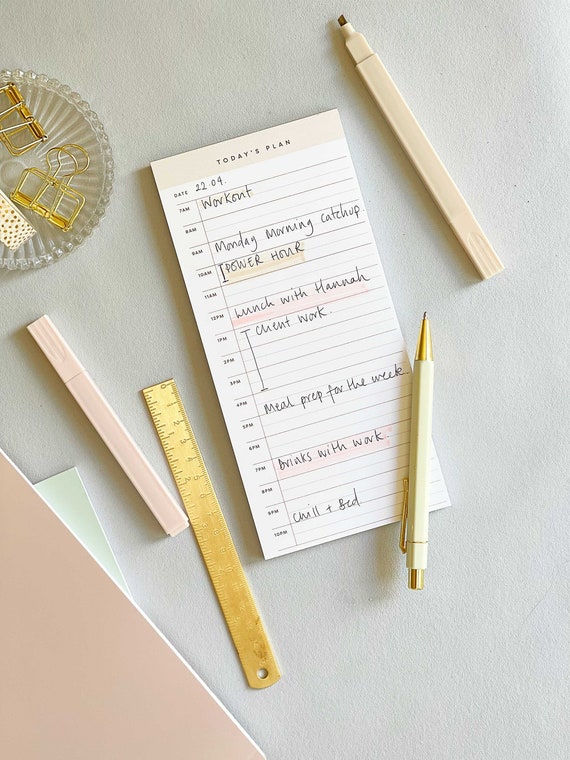 TODAY'S PLAN
DATE 22.04.
7AM Workout
8AM
9AM Monday Morning catchup.
10AM POWER HOUR
11AM
12PM Lunch with Hannah
1PM Client Work.
2PM
3PM
4PM Meal prep for the week.
5PM
6PM
7PM Drinks with work.
8PM
9PM Chill + Bed
10PM